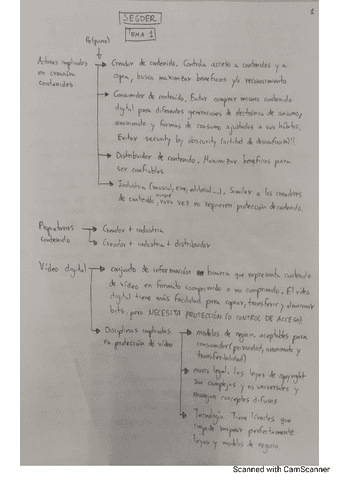 1
SEGDER
TEMA 1
Actores implicados
en creación
contenidos
→ Creador de contenido. Controla acceso a contenidos y a
copia, busca maximizar beneficios y/o reconocimiento
→ Consumidor de contenido. Evitar comprar mismo contenido
digital para diferentes generaciones de electrónica de consumo,
anonimato y formas de consumo ajustadas a sus hábitos.
Evitar security by obscurity (actitud de desconfianza)!!
→ Distribuidor de contenido. Maximizar beneficios para
ser confiables
→ Industria (musical, cine, editorial...). Similar a los creadores
de contenido, aunque rara vez no requieren protección de contenido.
Propietarios
contenido
→ Creador + industria
→ Creador + industria + distribuidor
Vídeo digital
→ conjunto de información binaria que representa contenido
de vídeo en formato comprimido o no comprimido. El vídeo
digital tiene más facilidad para copiar, transferir y almacenar
bits, pero NECESITA PROTECCIÓN (O CONTROL DE ACCESO).
→ Disciplinas implicadas
en protección de vídeo
→ modelos de negocio, aceptables para
consumidor (privacidad, anonimato y
transferibilidad)
→ marco legal. las leyes de copyright
son complejas y no universales y
manejan conceptos difusos
→ Tecnología. Tiene límites que
impide mapear perfectamente
leyes y modelos de negocio.
Scanned with CamScanner